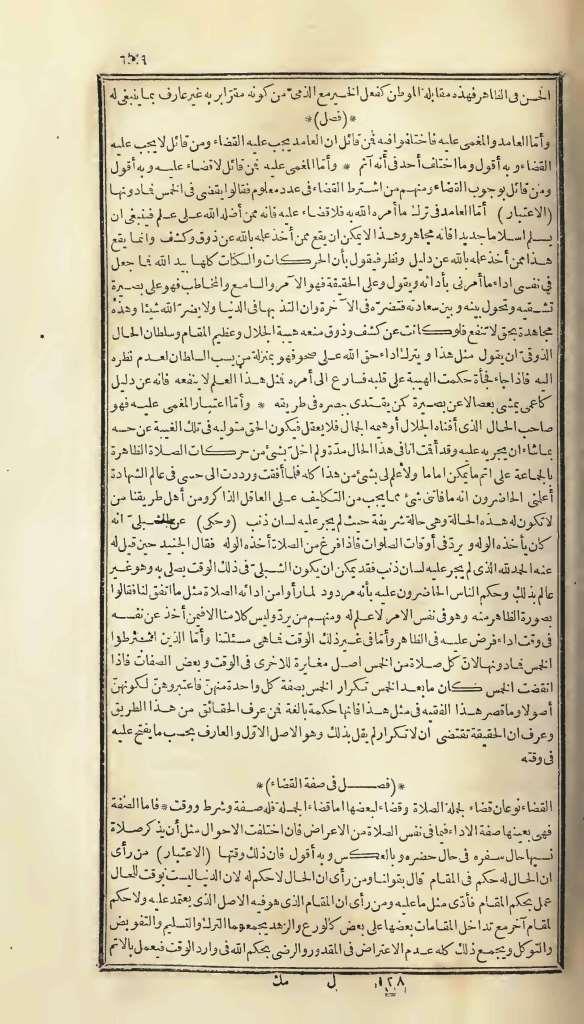 ٦٣٩
الحسن فى الظاهر فهذه مقابلة الموطن كفعل الخير مع الذمى من كونه مقرّا بربه غير عارف بما ينبغى له
*(فصل)*
وأمّا العامد والمغمى عليه فاختلفوا فيه فمن قائل ان العامد يجب عليه القضاء ومن قائل لا يجب عليه
القضاء وبه أقول وما اختلف أحد فى أنه آثم * وأمّا المغمى عليه فمن قائل لا قضاء عليه وبه أقول
ومن قائل بوجوب القضاء ومنهم من اشترط القضاء فى عدد معلوم فقالوا يقضى فى الخمس فما دونها
(الاعتبار) أمّا العامد فى ترك ما أمره الله به فلا قضاء عليه فانه ممن أضله الله على علم فينبغى ان
يسلم اسلاما جديدا فانه مجاهر وهذا لا يمكن ان يقع ممن أخذ علمه بالله عن ذوق وكشف وانما يقع
هذا ممن أخذ علمه بالله عن دليل ونظر فيقول بأن الحركات والسكنات كلها بيد الله فما جعل
فى نفسى اداء ما أمرنى بأدائه ويقول وعلى الحقيقة فهو الآمر والسامع والمخاطب فهو على بصيرة
تشقيه وتحول بينه وبين سعادته فتضرّه فى الآخرة وان التذ بها فى الدنيا ولا يضرّ الله شيئا وهذه
مجاهدة بحق لا تنفع فلو كانت عن كشف وذوق منعه هيبة الجلال وعظيم المقام وسلطان الحال
الذوقى ان يقول مثل هذا ويترك اداء حق الله على صحو فهو بمنزلة من يسب السلطان لعدم نظره
اليه فاذا جاء فجأة حكمت الهيبة على قلبه فسارع الى أمره فمثل هذا العلم لا ينفعه فانه عن دليل
كاعمى يمشى بعصا لا عن بصيرة كمن يقتدى ببصره فى طريقه * وأمّا اعتبار المغمى عليه فهو
صاحب الحال الذى أفناه الجلال أو هيمه الجمال فلا يعقل فيكون الحق متوليه فى تلك الغيبة عن حسه
بما شاء ان يجريه عليه وقد أقت أنا فى هذا الحال مدّة ولم اخل بشئ من حركات الصلاة الظاهرة
بالجماعة على أتم ما يمكن اماما ولا علم لى بشئ من هذا كله فلما أفقت ورددت الى حسى فى عالم الشهادة
أعلمنى الحاضرون انه ما فاتنى شئ مما يجب من التكليف على العاقل الذاكر ومن أهل طريقنا من
لا تكون له هذه الحالة وهى حالة شريفة حيث لم يجر عليه لسان ذنب (وحكى) عن الشبلىّ انه
كان يأخذه الوله ويردّ فى أوقات الصلوات فاذا فرغ من الصلاة أخذه الوله فقال الجنيد حين قيل له
عنه الحمد لله الذى لم يجر عليه لسان ذنب فقد يمكن ان يكون الشبلىّ فى ذلك الوقت يصلى به وهو غير
عالم بذلك وحكم الناس الحاضرون عليه بأنه مردود لما رأوا من ادائه الصلاة مثل ما اتفق لنا فقالوا
بصورة الظاهر منه وهو فى نفس الامر لا علم له ومنهم من يردّ وليس كلامنا الا فيمن أخذ عن نفسه
فى وقت اداء فرض عليه فى الظاهر وأمّا فى غير ذلك الوقت فما هى مسئلتنا وأمّا الذين اشترطوا
الخمس فما دونها لانّ كل صلاة من الخمس اصل مغايرة للاخرى فى الوقت وبعض الصفات فاذا
انقضت الخمس كان ما بعد الخمس تكرار الخمس بصفة كل واحدة منهنّ فاعتبروهنّ لكونهنّ
أصولا وما قصر هذا الفقيه فى مثل هذا فانها حكمة بالغة فمن عرف الحقائق من هذا الطريق
وعرف ان الحقيقة تقتضى أن لا تكرار لم يقل بذلك وهو الاصل الاوّل والعارف بحسب ما يفتح عليه
فى وقته
*(فصل فى صفة القضاء)*
القضاء نوعان قضاء لجملة الصلاة وقضاء لبعضها اما قضاء الجملة فله صفة وشرط ووقت * فاما الصّفة
فهى بعينها صفة الاداء فيما فى نفس الصلاة من الاعراض فان اختلفت الاحوال مثل أن يذكر صلاة
نسيها حال سفره فى حال حضره وبالعكس وبه أقول فان ذلك وقتها (الاعتبار) من رأى
ان الحال له حكم فى المقام قال بقولنا ومن رأى ان الحال لا حكم له لان الدنيا ليست بوقت للحال
عمل بحكم المقام فأدّى مثل ما عليه ومن رأى ان المقام الذى هو فيه الاصل الذى يعتمد عليه ولا حكم
لمقام آخر مع تداخل المقامات بعضها على بعض كالورع والزهد يجمعهما الترك والتسليم والتفويض
والتوكل ويجمع ذلك كله عدم الاعتراض فى المقدور والرضى بحكم الله فى وارد الوقت فيعمل بالاتم
١٢٨ ل مك